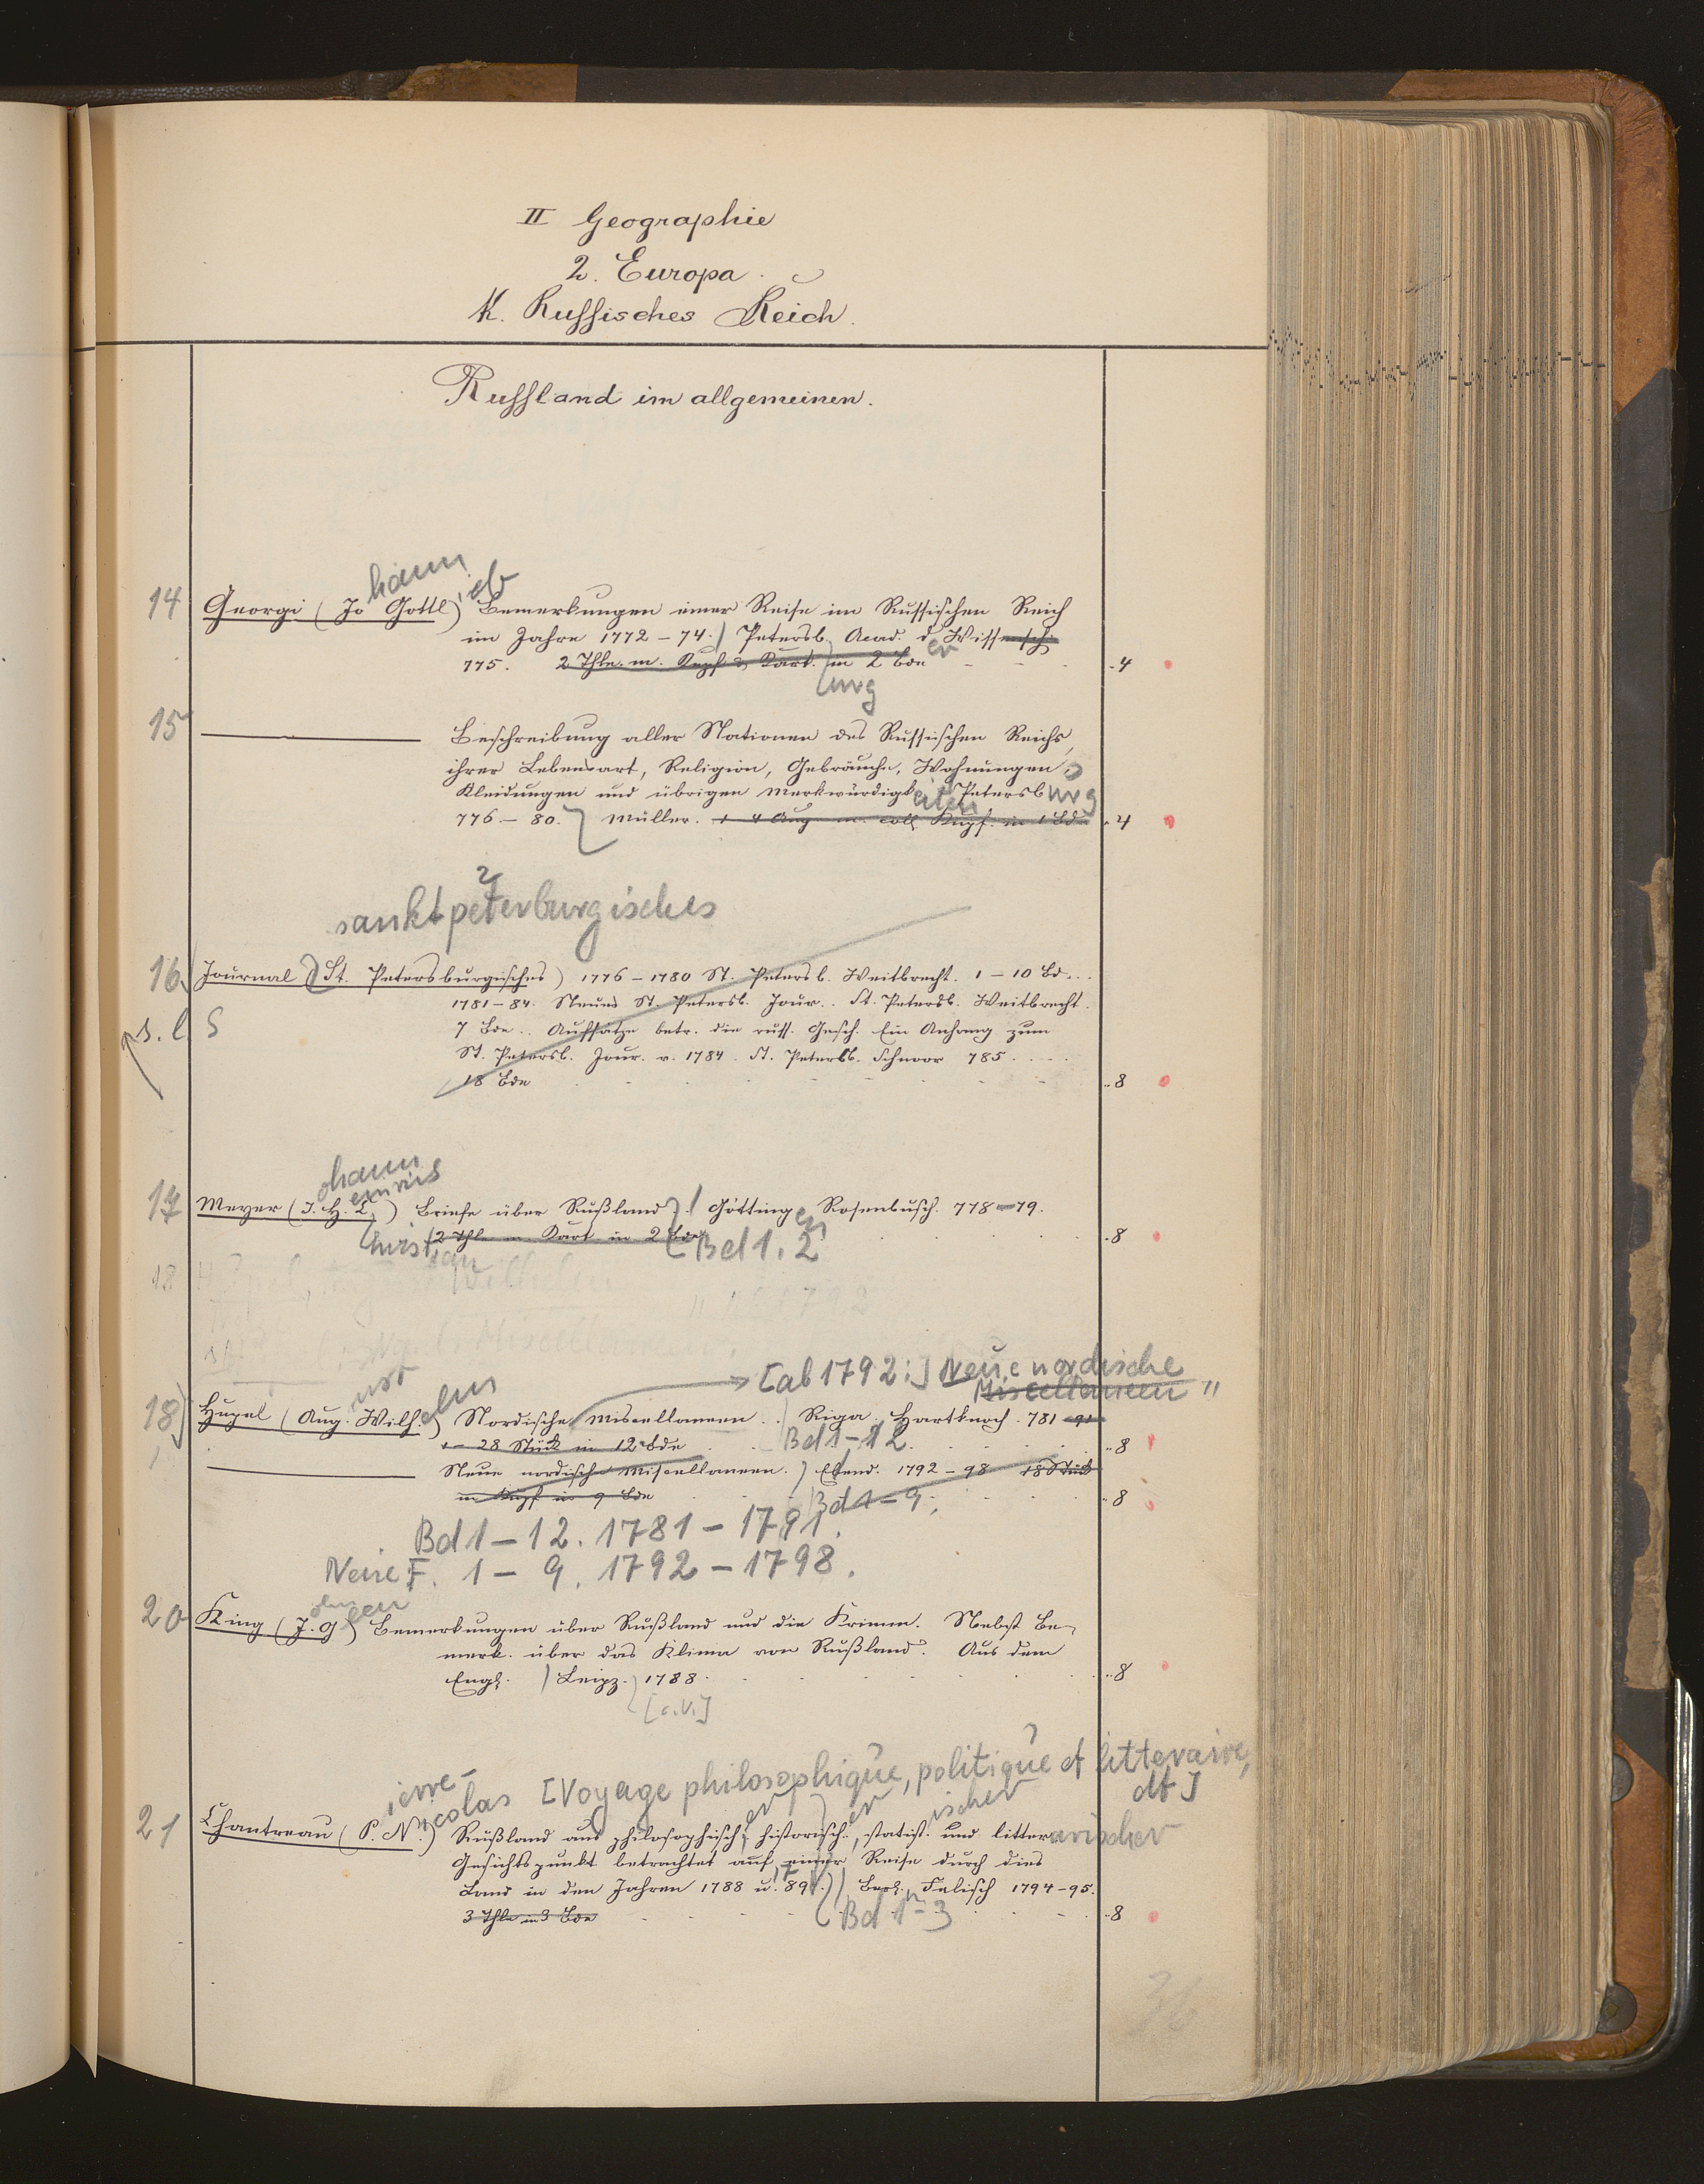 II Geographie
2. Europa.
K. Russisches Reich.
Russland im allgemeinen.
hann ieb
14 Georgi (Jo Gottl) Bemerkungen einer Reise im Russischen Reich
im Jahre 1772-74.) Petersb. Acad. d Wissensch
er
775. 2 Thle. m. Kupf & Kart. in 2 Bde - - - ..4
urg
15 ——— Beschreibung aller Nationen des Russischen Reichs,
ihrer Lebensart, Religion, Gebräuche, Wohnungen,
Kleidungen und übrigen Merkwürdigkeiten Petersburg
776-80. Müller. 1-4 Ausg m. coll. Kupf. in 1 Bd ..4
2
sanktpeterburgisches
16. Journal (St. Petersburgisches) 1776-1780 St. Petersb. Weitbrecht. 1-10 Bd...
1781-84. Neues St. Petersb. Jour.. St. Petersb. Weitbrecht.
s. l. S 7 Bde.. Aufsätze betr. die russ. Gesch. Ein Anhang zum
St. Petersb. Jour. v. 1784. St. Petersb. Schnoor 785.
18 Bde ..8
ohann
einrich
17 Meyer (J. H. C.) Briefe über Rußland.) Götting Rosenbusch. 778-79.
en
hristian 2 Thle m Kart in 2 Bde Bd 1. 2 ..8
18 Hupel, August Wilhelm
[ab 1792:] Neue nordische
Miscellaneen "
ust elm
18) Hupel (Aug. Wilh.) Nordische Miscellaneen.. Riga. Hartknoch. 781-91
1-28 Stück in 12 Bde Bd 1-12. ..8
——— Neue nordische Miscellaneen.) Ebend. 1792-98 18 Stück
m Kupf in 9 Bde Bd 1-9. ..8
Bd 1-12. 1781-1791.
Neue F. 1-9. 1792-1798.
ohn len
20 King (J. G) Bemerkungen über Rußland und die Krimm. Nebst Be-
merk. über das Klima von Rußland. Aus dem
Engl. ) Leipz. 1788. ..8
[o.V.]
ierre- icolas [Voyage philosophique, politique et litteraire,
dt]
er er ischer
21 Chantreau (P. N.) Rußland aus philosophisch, historisch., statist. und litterarischer
Gesichtspunkt betrachtet auf einer Reise durch dies
Land in den Jahren 1788 u. 89.) Berl. Felisch 1794-95.
3 Thle in 3 Bde Bd 1-3 ..8
36